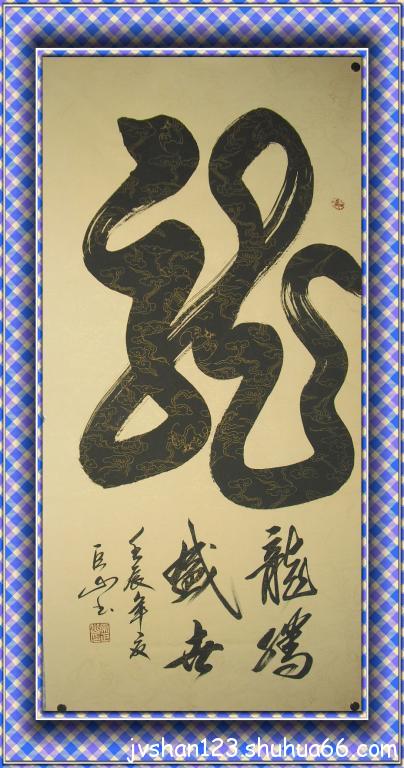 龍
龍騰
盛世
壬辰年夏
巨山书
jvshan123.shuhua66.com